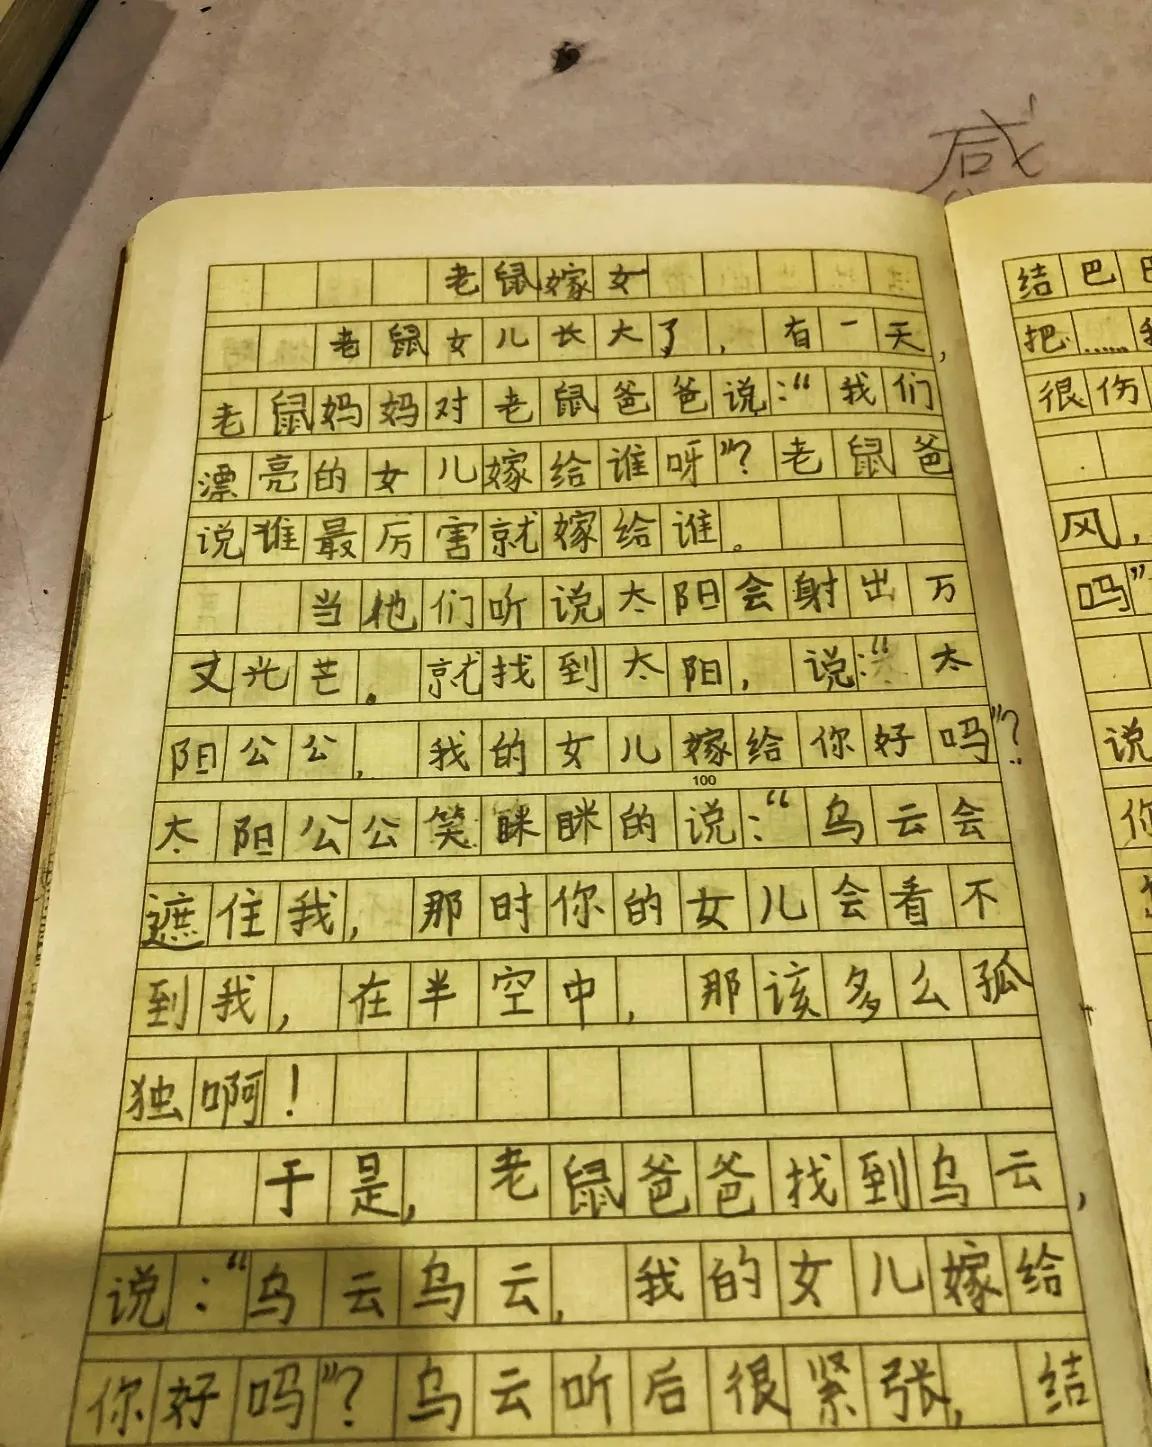 感
老鼠嫁女
老鼠女儿长大了，有一天，
老鼠妈妈对老鼠爸爸说：“我们
漂亮的女儿嫁给谁呀”？老鼠爸
说谁最厉害就嫁给谁。
当他们听说太阳会射出万
丈光芒。就找到太阳，说：“太
阳公公，我的女儿嫁给你好吗”？
100
太阳公公笑眯眯的说：“乌云会
遮住我，那时你的女儿会看不
到我，在半空中，那该多么孤
独啊！
于是，老鼠爸爸找到乌云，
说：“乌云乌云，我的女儿嫁给
你好吗”？乌云听后很紧张，结
结巴巴
把……我
很伤
风，
吗”
说
你